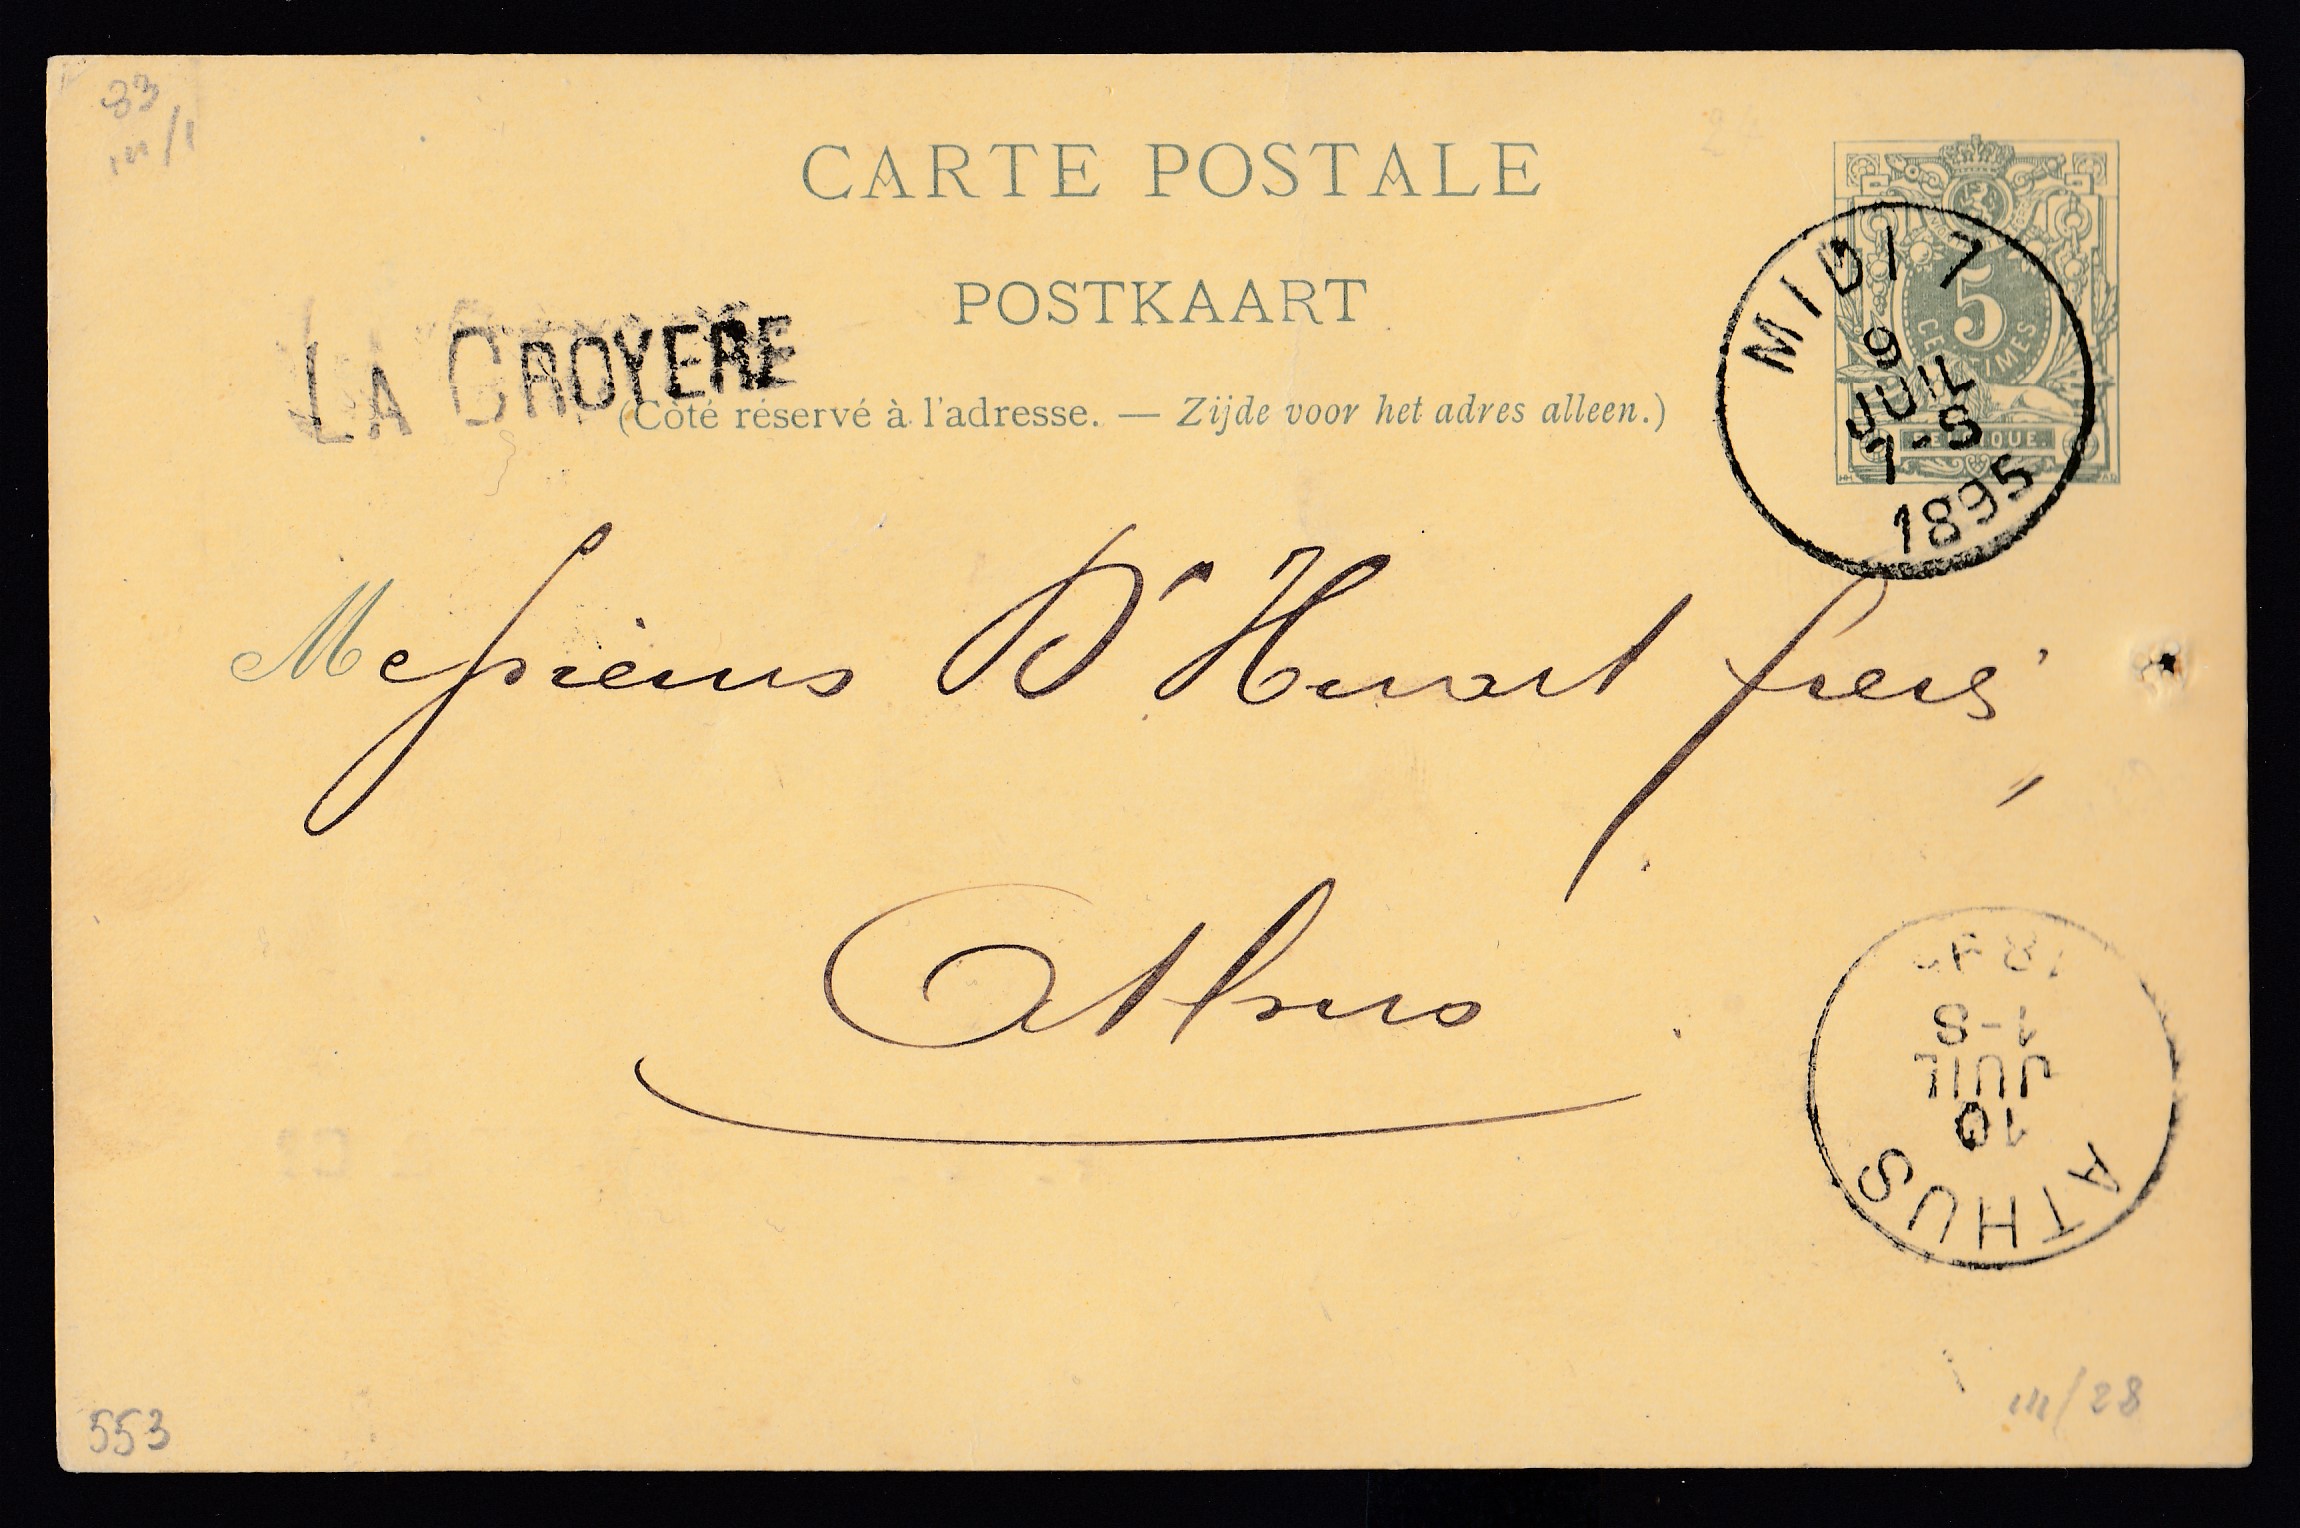 33
CARTE POSTALE
POSTKAART
LA CROYERE
(Côté réservé à l'adresse. — Zijde voor het adres alleen.)
5
CENTIMES
BELGIQUE.
MIDI 7
9
JUIL
7-S
1895
Messieurs D'Huart freres
Athus
ATHUS
10
JUIL
1-S
553